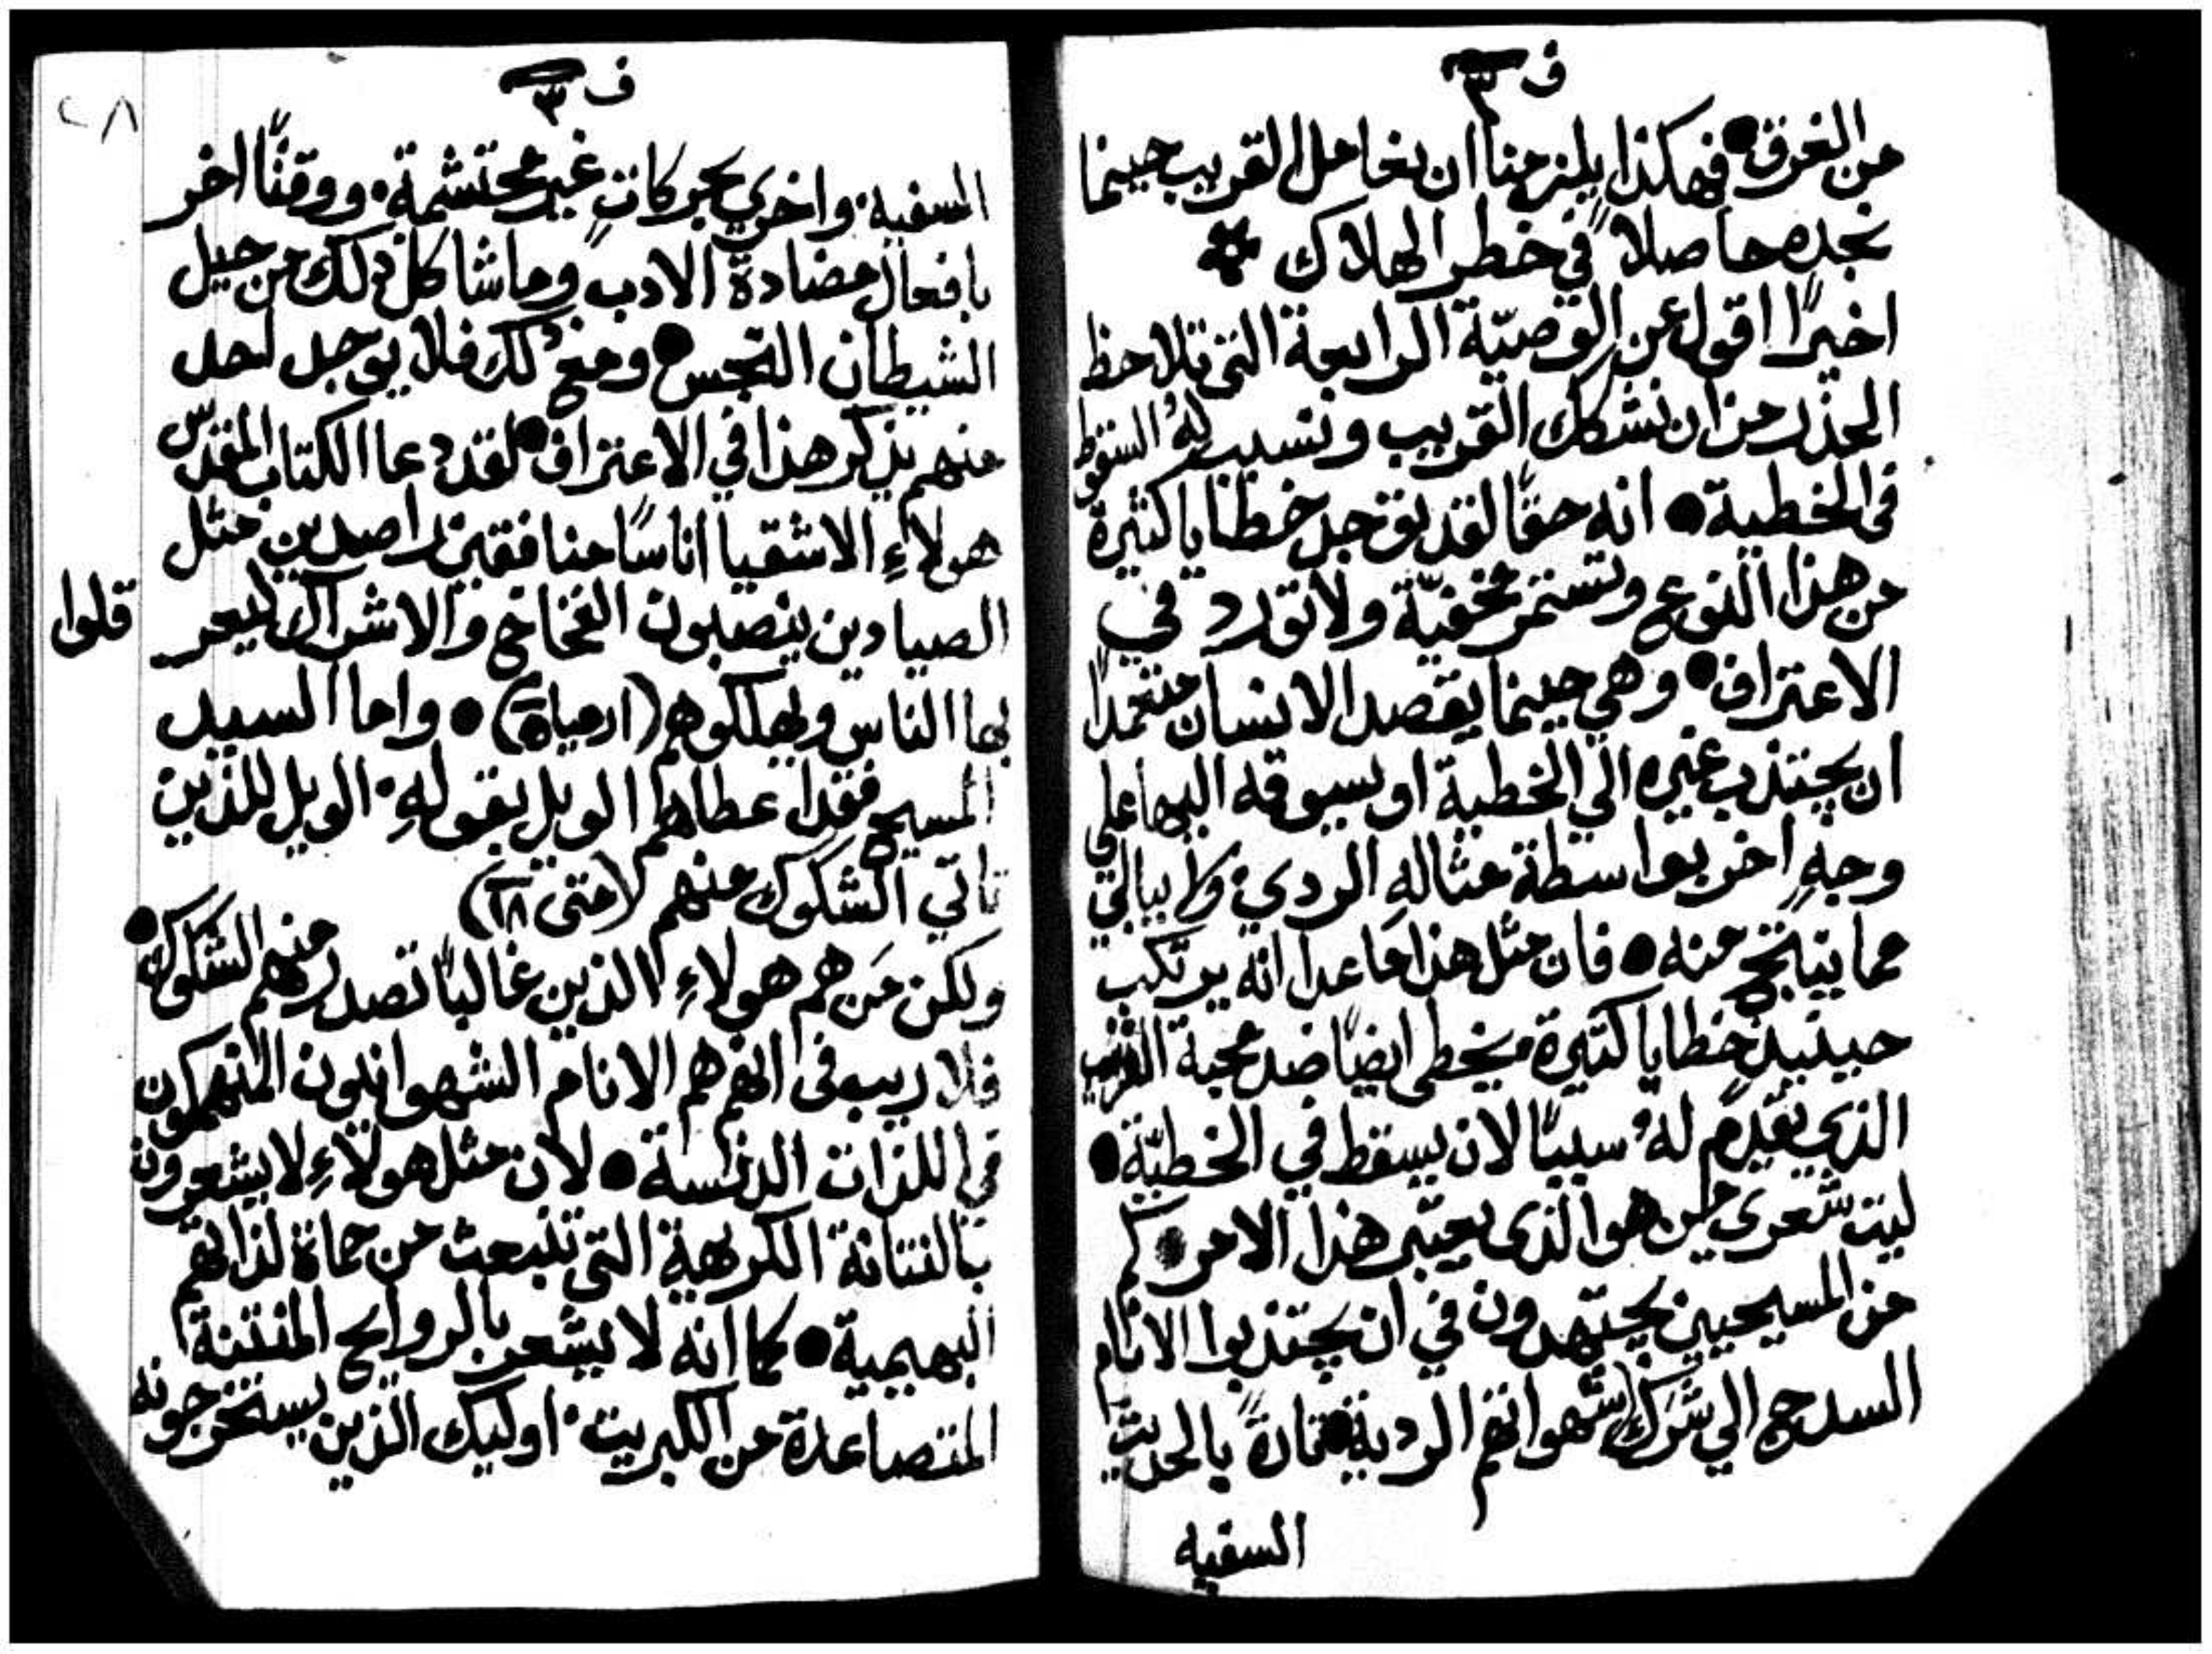 ف ٣
من الغرق • فهكذا يلزمنا ان نعامل القريب حينما
نجده حاصلاً في خطر الهلاك
اخيرًا اقول عن الوصيّة الرابعة التي تلاحظ
الحذر من ان نشكك القريب ونسبب لهُ السقوط
في الخطية • انه حقًا لقد يوجد خطايا كثيرة
من هذا النوع وتستمر مخفيّة ولا تورد في
الاعتراف • وهي حينما يقصد الانسان متعمدًا
ان يجتذب غيره الي الخطية او يسوقه اليها علي
وجهٍ اخر بواسطة مثاله الردي ولا يبالي
مما ينتج منه • فان مثل هذا ما عدا انه يرتكب
حينيذٍ خطايا كثيرة يخطي ايضًا ضد محبة القريب
الذي يقدم لهُ سببًا لان يسقط في الخطيّة •
ليت شعري من هو الذي يعتبر هذا الامر • كم
من المسيحيين يجتهدون في ان يجتذبوا الانام
السدج الي شرَك شهواتهم الردية • تارةً بالحديث
السفيه
ف ٣
٢٨
السفيه • واخري بحركاتٍ غير محتشمة • ووقتًا اخر
بافعالٍ مضادة الادب وما شاكل ذلك من حيل
الشيطان النجس • ومع ذلك فلا يوجد احد
منهم يذكر هذا في الاعتراف • لقد دعا الكتاب المقدس
هولاءِ الاشقيا اناسًا منافقين راصدين مثل
الصيادين ينصبون الفخاخ والاشراك ليعر
قلوا
بها الناس ويهلكوهم (ارميا ٥) • واما السيد
المسيح فقد اعطاهم الويل بقولهِ • الويل للذين
تاتي الشكوك منهم (متى ١٨)
ولكن مَن هم هولاءِ الذين غالبًا تصدر منهم الشكوك •
فلا ريب في انهم هم الانام الشهوانيون المنهمكون
في اللذات الدنسة • لان مثل هولاءِ لا يشعرون
بالنتانة الكريهة التي تنبعث من حماة لذاتهم
البهيمية • كما انه لا يشعر بالروايح المنتنة
المتصاعدة من الكبريت • اوليك الذين يستخرجونه